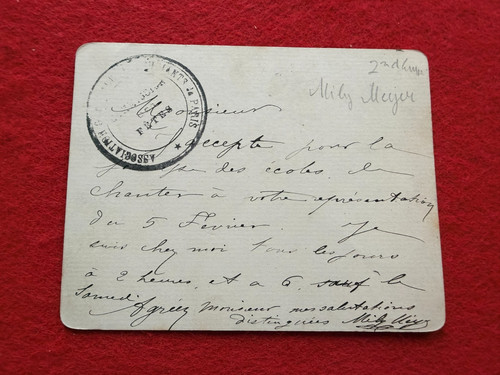 2nd
Mily Meyer
ASSOCIATION
DE PARIS
FÊTES
Monsieur
J'accepte pour la
des écoles, de
chanter à votre représentation
du 5 Février. Je
suis chez moi tous les jours
à 2 heures, et à 6, sauf le
Samedi
Agréez Monsieur mes salutations
distinguées Mily Meyer